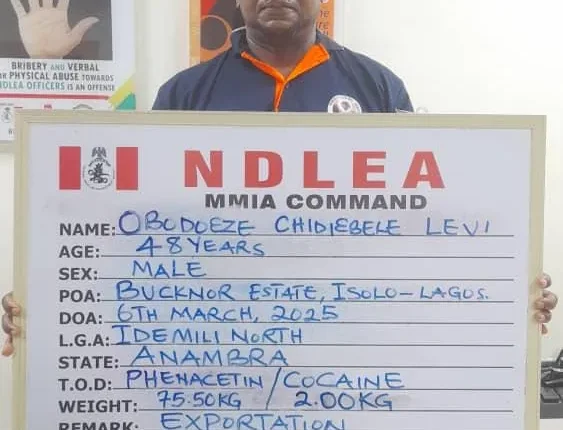 BRIBERY AND VERBAL
OR PHYSICAL ABUSE TOWARDS
NDLEA OFFICERS IS AN OFFENSE
NDLEA
MMIA COMMAND
NAME: OBODOEZE CHIDIEBELE LEVI
AGE: 48 YEARS
SEX: MALE
POA: BUCKNOR ESTATE, ISOLO-LAGOS.
DOA: 6TH MARCH, 2025
L.G.A: IDEMILI NORTH
STATE: ANAMBRA
T.O.D: PHENACETIN / COCAINE
WEIGHT: 75.50KG / 2.00KG
REMARK: EXPORTATION